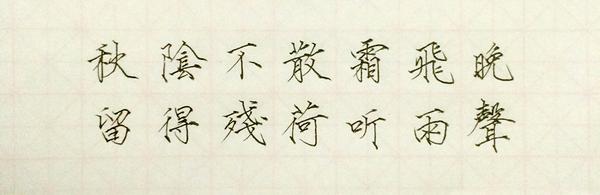 秋陰不散霜飛晚
留得殘荷听雨聲